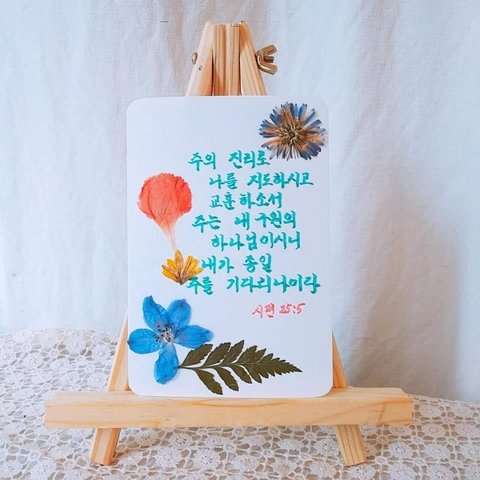 주의 진리로
나를 지도하시고
교훈하소서
주는 내 구원의
하나님이시니
내가 종일
주를 기다리나이다
시편 25:5